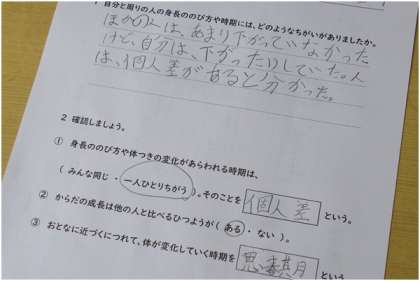 自分と周りの人の身長ののび方や時期には、どのようなちがいがありましたか。
ほかの人は、あまり下がっていなかった
けど、自分は、下がったりしていた。人
は、個人差があると分かった。
2 確認しましょう。
① 身長ののび方や体つきの変化があらわれる時期は、
( みんな同じ ・ 一人ひとりちがう )。そのことを 個人差 という。
② からだの成長は他の人と比べるひつようが ( ある ・ ない )。
③ おとなに近づくにつれて、体が変化していく時期を 思春期 という